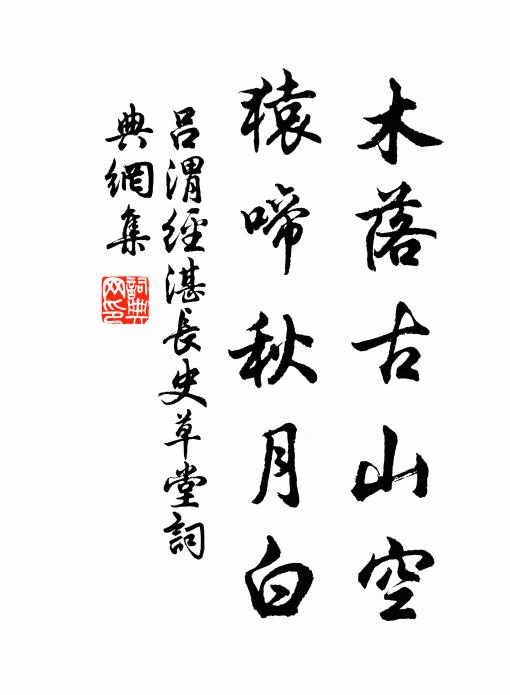 木落古山空
猿啼秋月白
吕渭經湛長史草堂詞
典網集
詞典
网印